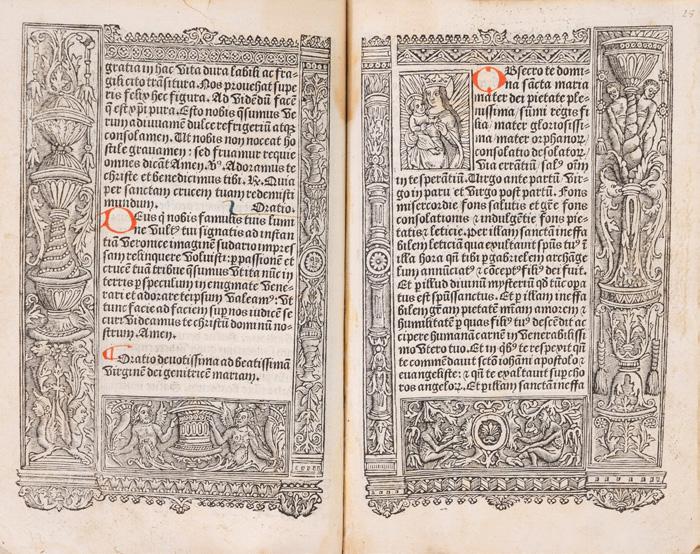 gratia in hac vita dura labili ac fra-
gili cito trāsitura. Nos provehat supe
ris felix hec figura. Ad vidēdū facē
q̄ est xp̄i pura. Esto nobis q̄sumus ve
rum adiuvamē dulce refrigeriū atqz
consolamen. Ut nobis non noceat ho
stile gravamen: sed fruamur requie
omnes dicāt Amen. ℣. Adoramus te
christe et benedicimus tibi. ℟. Quia
per sanctam crucem tuam redemisti
mundum. Oratio.
Deus q̄ nobis famulis tuis lumi
ne vult⁹ tui signatis ad instan
tiā Veronice imaginē sudario impres
sam relinquere voluisti: ꝑ passionē et
crucē tuā tribue q̄sumus vt ita nūc in
terris ꝑ speculum in enigmate vene-
rari et adorare teipsum valeam⁹: vt
tunc facie ad faciem sup nos iudicē se
curi videamus te christū dominū no-
strum. Amen.
Oratio devotissima ad beatissimā
virginē dei genitricē mariam.
25
OBsecro te domi-
na sācta maria
mater dei pietate ple-
nissima, sūmi regis fi
lia mater gloriosissi-
ma mater orphanoꝝ,
consolatio desolatoꝝ,
via errātiū sal⁹ om̄
in te sperātiū. Virgo ante partū virgo
in partu et virgo post partū. Fons
misericordie fons salutis et gr̄e fons
consolationis ⁊ indulgētie fons pie-
tatis ⁊ leticie. Per illam sanctā ineffa
bilem leticiā qua exultavit spūs tu⁹ ī
illa hora qn̄ tibi ꝑ gabrielem archāge
lum annūciat⁹ ⁊ cōcept⁹ fili⁹ dei fuit.
Et ꝑ illud divinū mysteriū qd̄ tūc opa
tus est spūssanctus. Et ꝑ illam ineffa
bilem gr̄am pietatē miām amorem ⁊
humilitatē ꝑ quas fili⁹ tu⁹ descēdit ac
cipere humanā carnē in venerabilissi
mo vtero tuo. Et in qb⁹ te respexit qn̄
te commēdavit sctō iohāni apostolo ⁊
euangeliste: ⁊ qn̄ te exaltavit sup cho
ros angeloꝝ. Et ꝑ illam sanctā ineffa